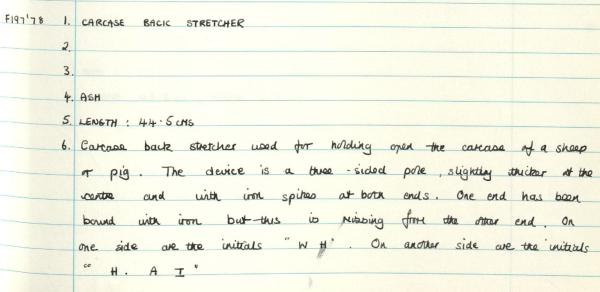 F197'78 1. CARCASE BACK STRETCHER
2.
3.
4. ASH
5. LENGTH : 44.5 CMS
6. Carcase back stretcher used for holding open the carcase of a sheep
or pig. The device is a three-sided pole, slightly thicker at the
centre and with iron spikes at both ends. One end has been
bound with iron but this is missing from the other end. On
one side are the initials "W H". On another side are the initials
"H. A I"